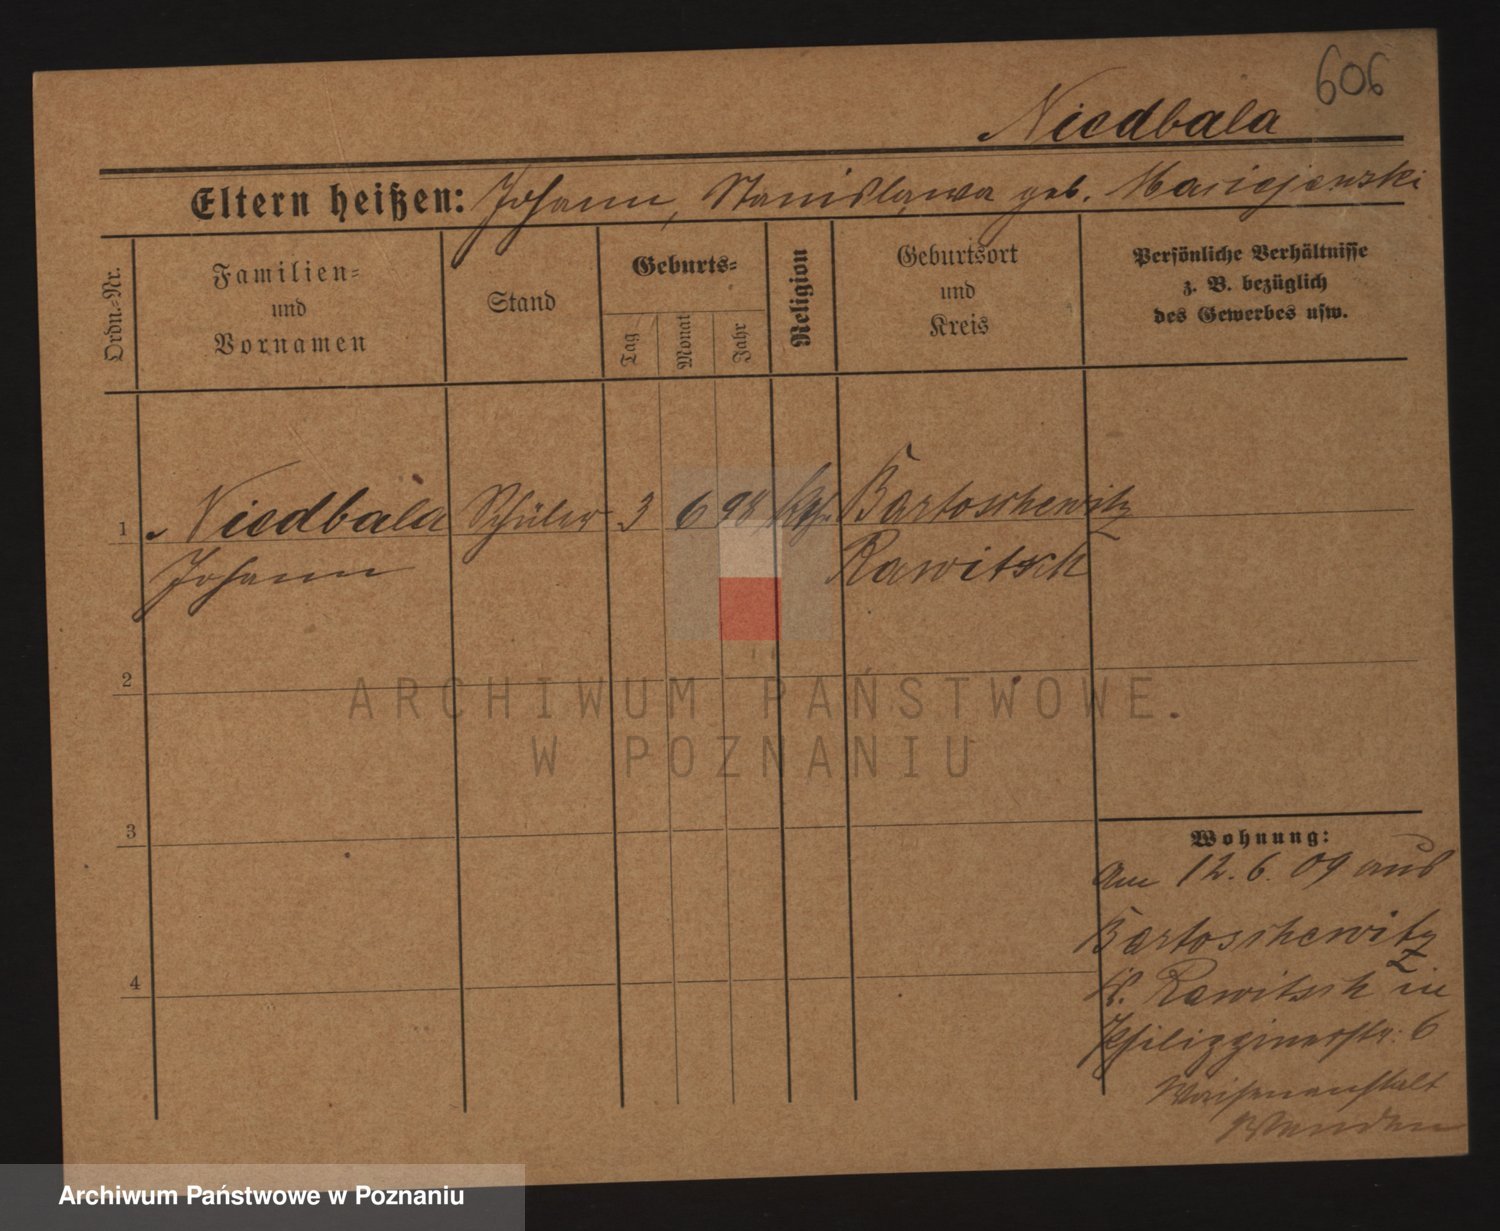 606
Niedbala
Eltern heißen: Johann, Stanislawa geb. Maciejewski
Ordn.-Nr.
Familien-
und
Vornamen
Stand
Geburts-
Tag
Monat
Jahr
Religion
Geburtsort
und
Kreis
Persönliche Verhältnisse
z. B. bezüglich
des Gewerbes usw.
1 Niedbala Schüler 3 6 98 kth. Bartoschewitz
Johann Rawitsch
2
3
4
Wohnung:
Am 12.6.09 aus
Bartoschewitz
K. Rawitsch in
Philippinerstr. 6
Waisenanstalt
ARCHIWUM PAŃSTWOWE
W POZNANIU
Archiwum Państwowe w Poznaniu